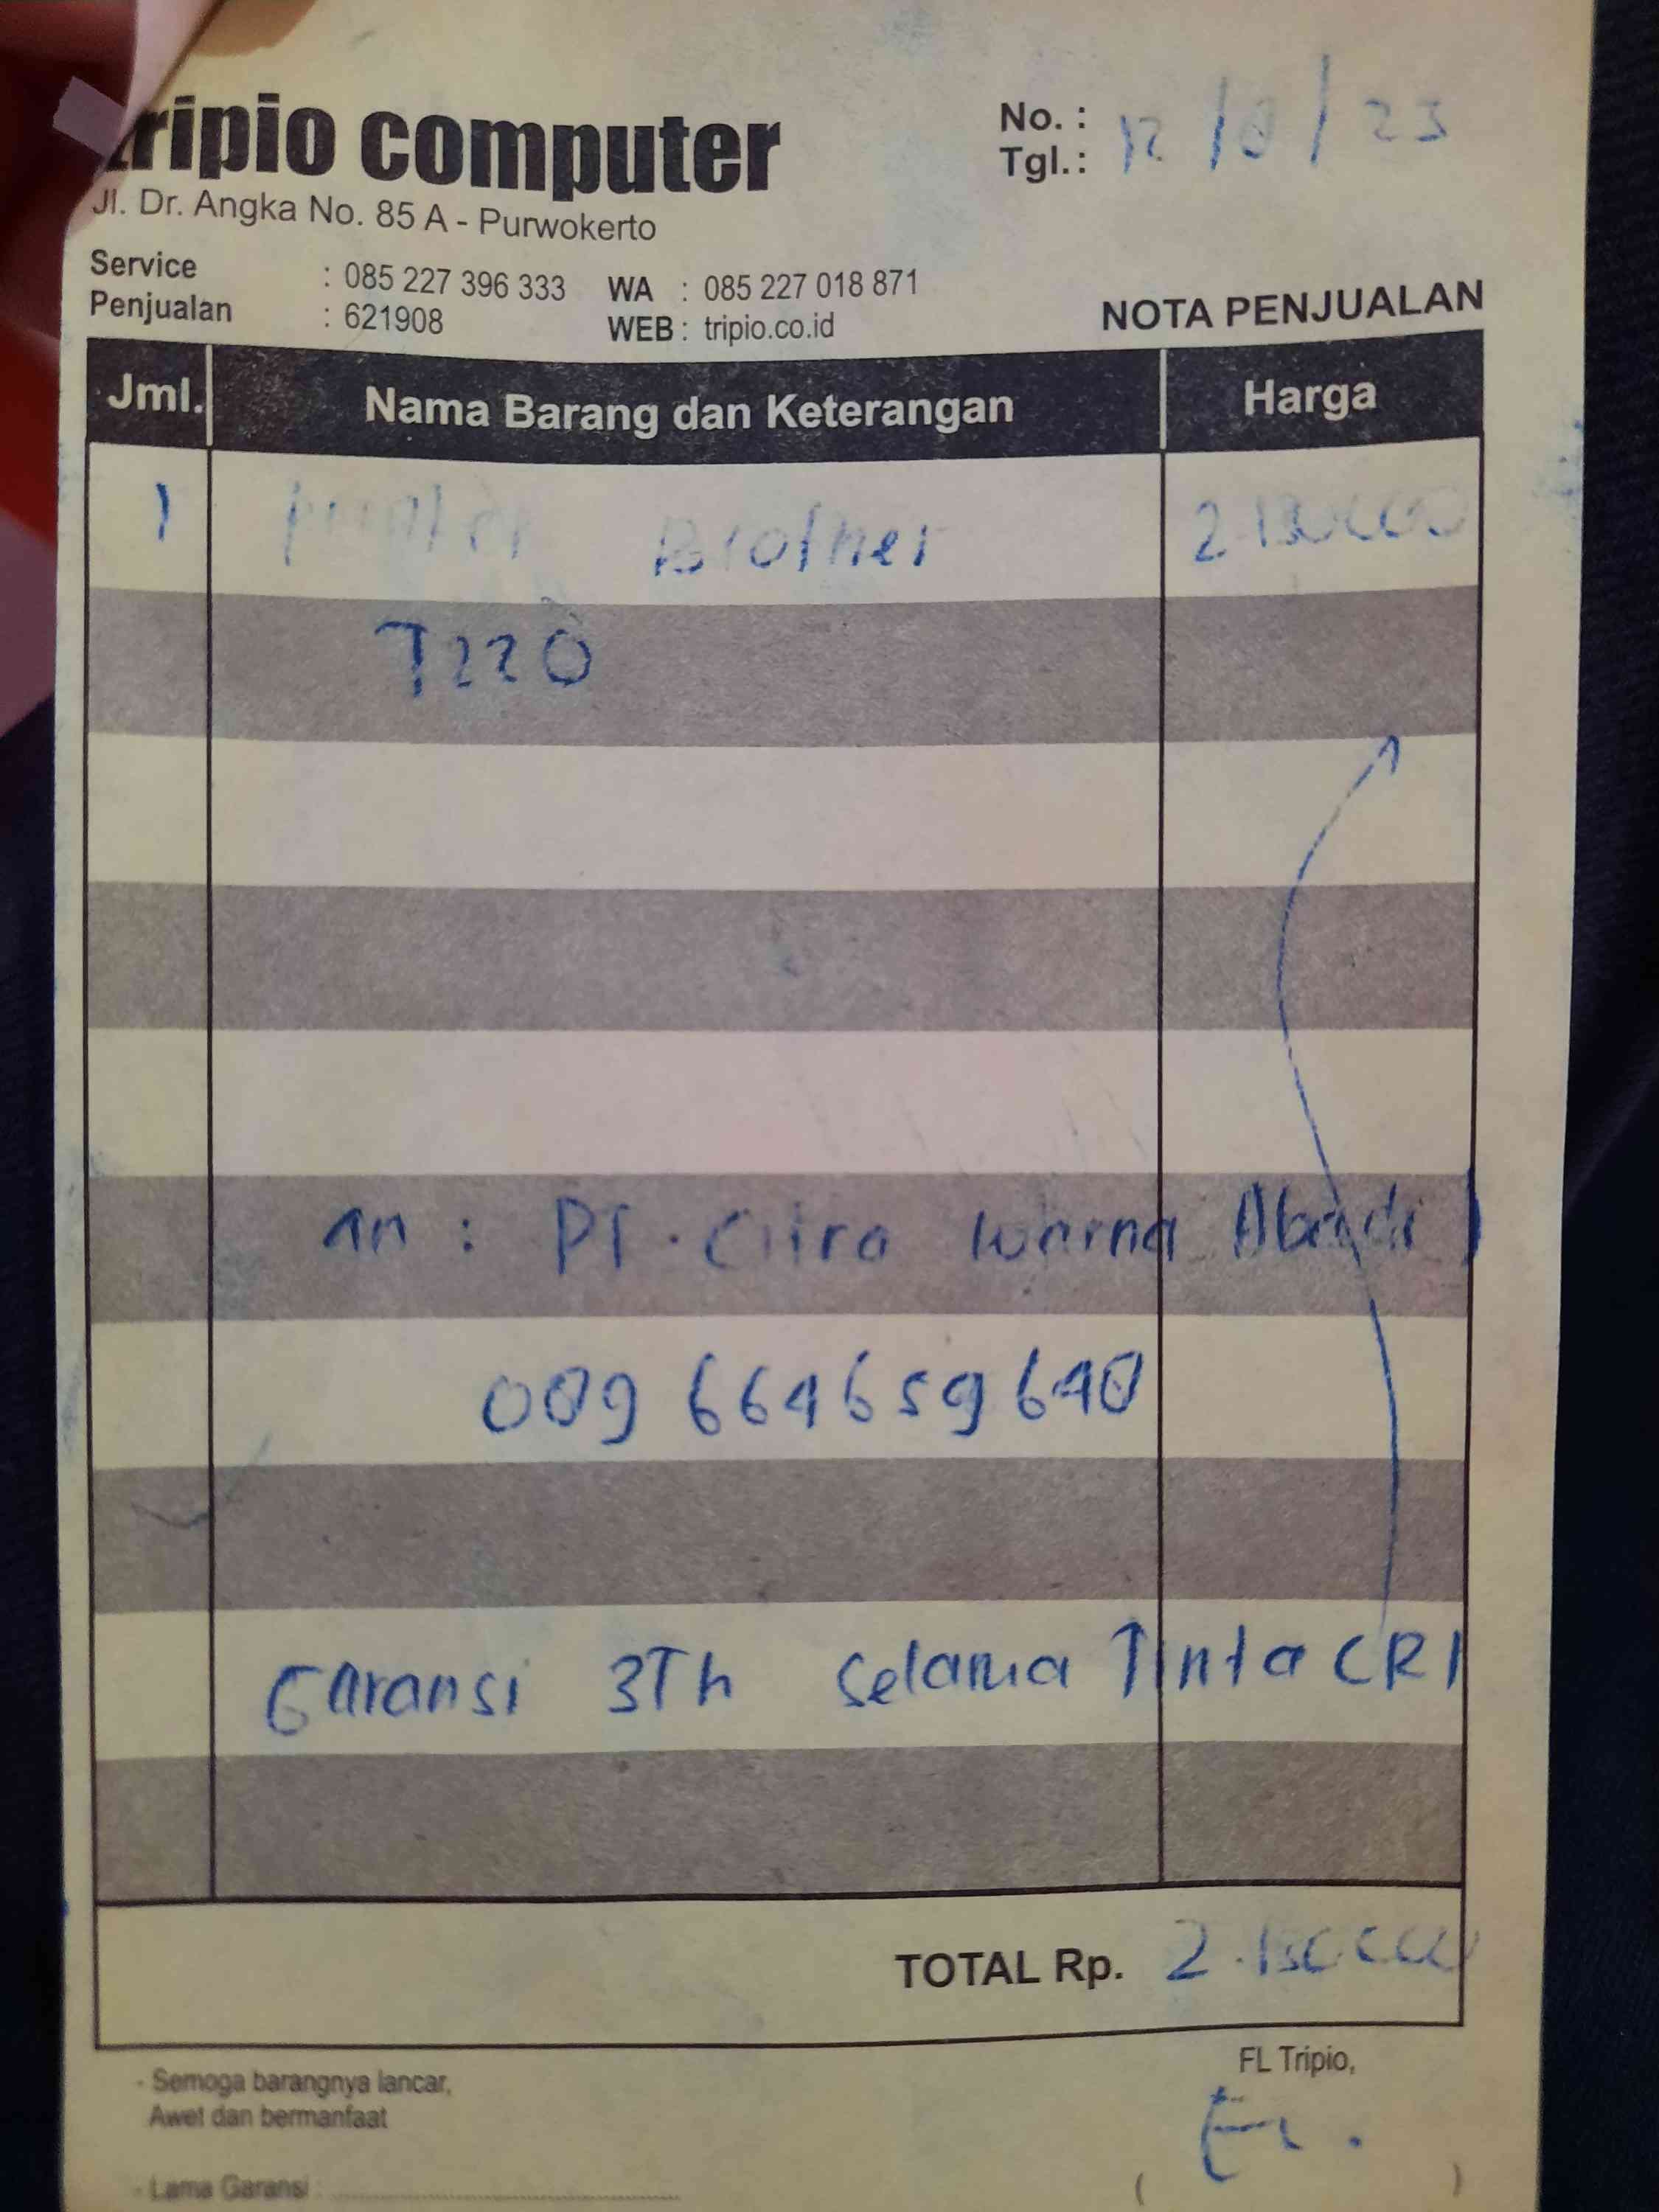 tripio computer
Jl. Dr. Angka No. 85 A - Purwokerto
No. :
Tgl.: 12 / / 23
Service : 085 227 396 333 WA : 085 227 018 871
Penjualan : 621908 WEB : tripio.co.id
NOTA PENJUALAN
Jml. Nama Barang dan Keterangan Harga
1 printer Brother 2.150.000
T220
an : PT. Citra Warna Abadi
009 664659640
Garansi 3Th Selama Tinta ORI
TOTAL Rp. 2.150.000
FL Tripio,
- Semoga barangnya lancar,
Awet dan bermanfaat
- Lama Garansi : ( )